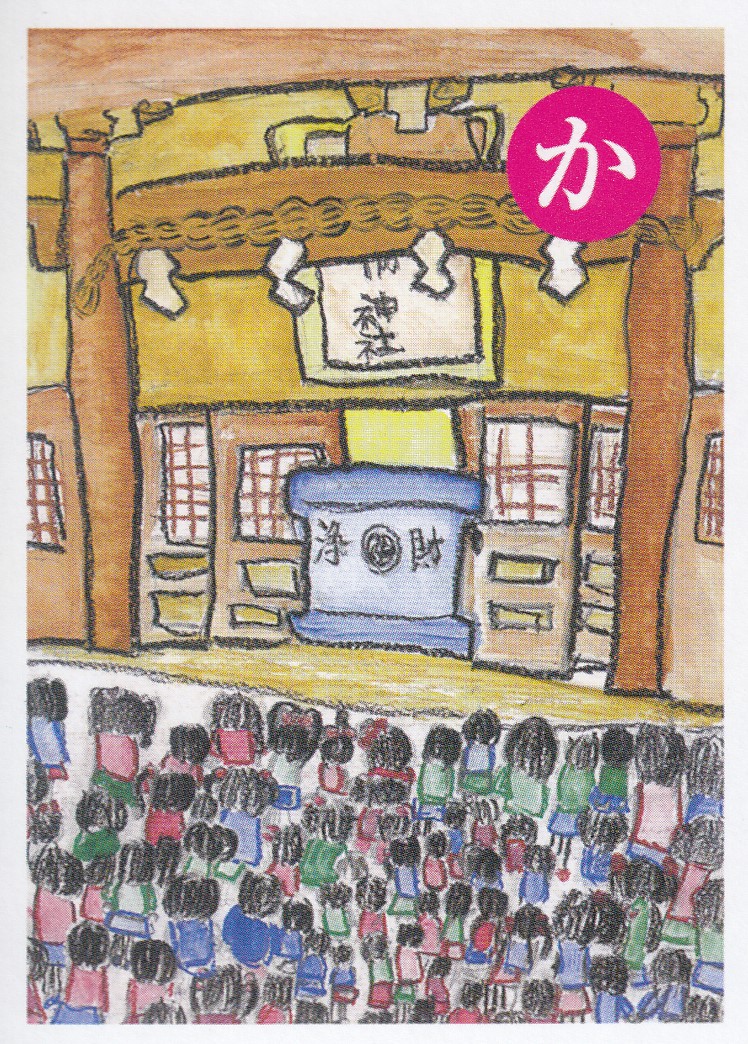 か
神社
浄 財